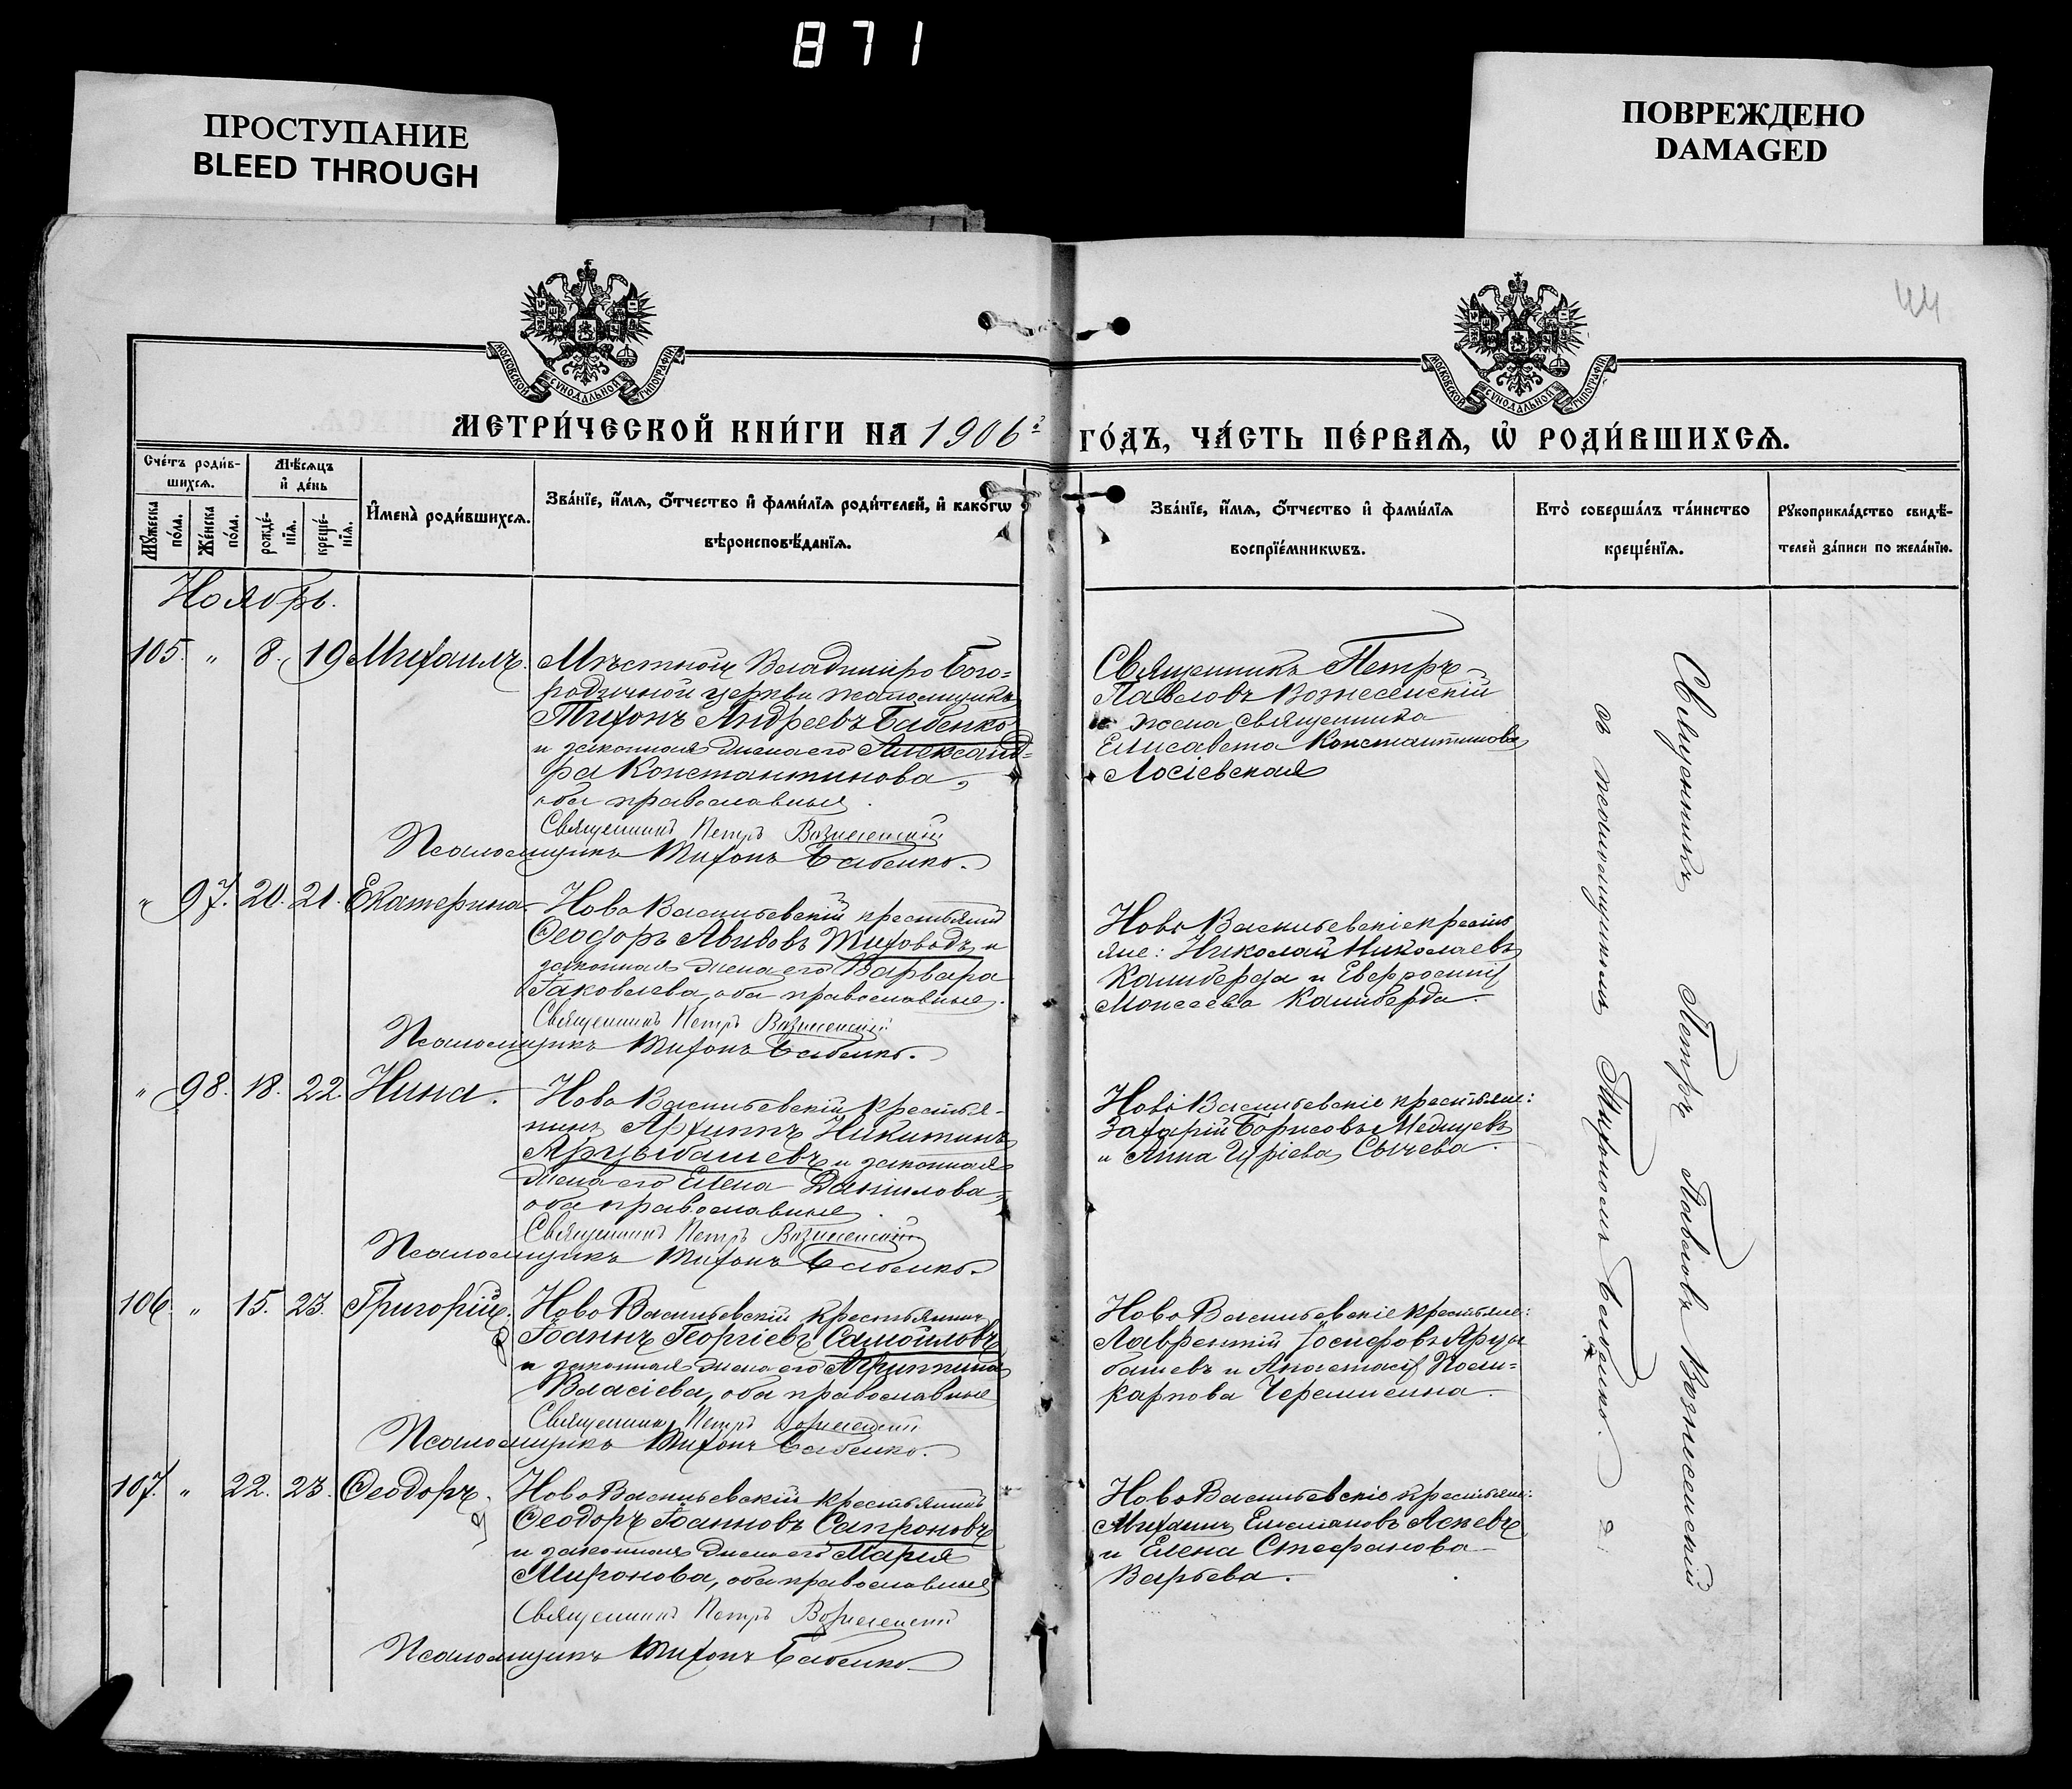 871
ПРОСТУПАНИЕ
BLEED THROUGH
ПОВРЕЖДЕНО
DAMAGED
44
МОСКОВСКОЙ СУНОДАЛЬНОЙ ТИПОГРАФІИ
МОСКОВСКОЙ СУНОДАЛЬНОЙ ТИПОГРАФІИ
МЕТРИ́ЧЕСКОЙ КНИ́ГИ НА 1906 го́дъ, ча́сть пе́рваѧ, ѡ҆ роди́вшихсѧ.
Сче́тъ роди́в-
шихсѧ.
Мꙋжеска по́ла.
Же́нска по́ла.
Мѣ́сѧцъ
и҆ де́нь
рожде́-
нїѧ.
креще́-
нїѧ.
И҆мена̀ роди́вшихсѧ.
Зва́нїе, и҆́мѧ, ѻ҆́тчество и҆ фами́лїѧ роди́телей, и҆ како́гѡ
вѣроисповѣ́данїѧ.
Зва́нїе, и҆́мѧ, ѻ҆́тчество и҆ фами́лїѧ
воспрїе́мникѡвъ.
Кто̀ соверша́лъ та́инство
креще́нїѧ.
Рꙋкоприкла́дство свидѣ́-
телей за́писи по жела́нїю.
Ноябрь.
105. " 8. 19 Михаилъ.
Мѣстной Владимиро Бого-
родичной церкви псаломщикъ
Тихонъ Андреевъ Бабенко
и законная жена его Александ-
ра Константинова,
оба православные.
Священникъ Петръ Вознесенскій
Псаломщикъ Тихонъ Бабенко.
Священникъ Петръ
Павловъ Вознесенскій
и жена священника
Елисавета Константинова
Лосіевская
" 97. 20. 21. Екатерина
Ново Васильевскій крестьянинъ
Ѳеодоръ Авивовъ Тиховодъ и
законная жена его Варвара
Іаковлева, оба православные.
Священникъ Петръ Вознесенскій
Псаломщикъ Тихонъ Бабенко.
Ново Васильевскіе кресть
яне: Николай Николаевъ
Калиберда и Евфросинія
Моисеева Калиберда.
" 98. 18. 22. Нина.
Ново Васильевскій крестья-
нинъ Архиппъ Никитинъ
Арцыбашевъ и законная
жена его Елена Даніилова,
оба православные.
Священникъ Петръ Вознесенскій
Псаломщикъ Тихонъ Бабенко.
Ново Васильевскіе крестьяне:
Захарій Борисовъ Медицевъ
и Анна Гуріева Сычева.
106. " 15. 23. Григорій.
Ново Васильевскій крестьянинъ
Іоаннъ Георгіевъ Самойловъ
и законная жена его Агриппина
Власіева, оба православные
Священникъ Петръ Вознесенскій
Псаломщикъ Тихонъ Бабенко.
Ново Васильевскіе крестьяне:
Лаврентій Іосифовъ Арцы
башевъ и Анастасія Поли-
карпова Черемисина.
107. " 22. 23. Ѳеодоръ.
Ново Васильевскій крестьянинъ
Ѳеодоръ Іоанновъ Сапроновъ
и законная жена его Марія
Миронова, оба православные
Священникъ Петръ Вознесенскій
Псаломщикъ Тихонъ Бабенко
Ново Васильевскіе крестьяне:
Михаилъ Емелиановъ Аспевъ
и Елена Стефанова
Варьева.
Священникъ Петръ Павловъ Вознесенскій
съ псаломщикомъ Тихономъ Бабенко.